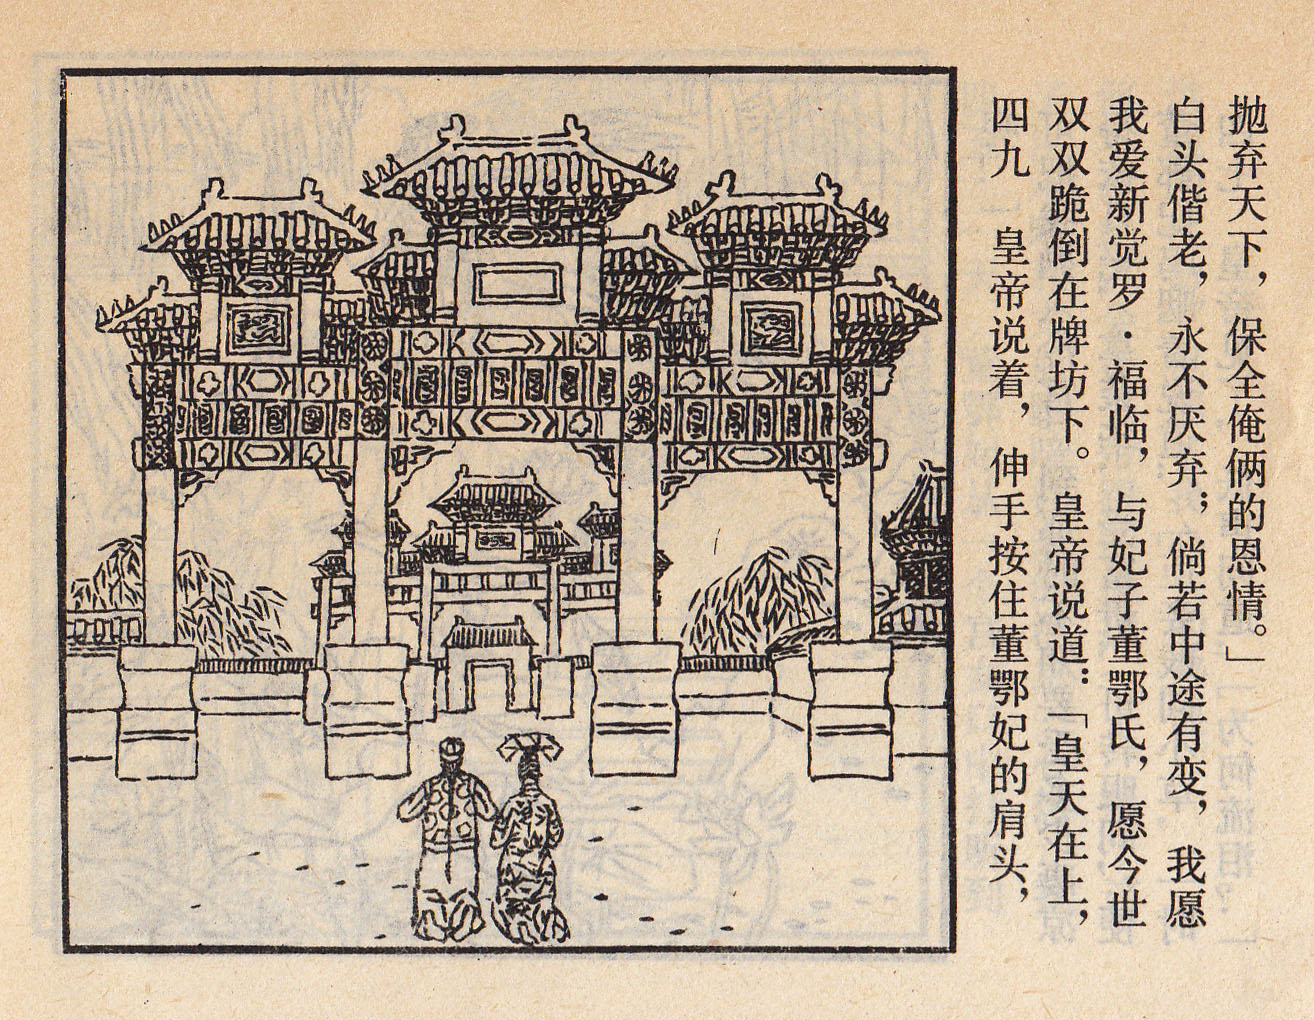 四九 皇帝说着，伸手按住董鄂妃的肩头，
双双跪倒在牌坊下。皇帝说道：「皇天在上，
我爱新觉罗·福临，与妃子董鄂氏，愿今世
白头偕老，永不厌弃；倘若中途有变，我愿
抛弃天下，保全俺俩的恩情。」